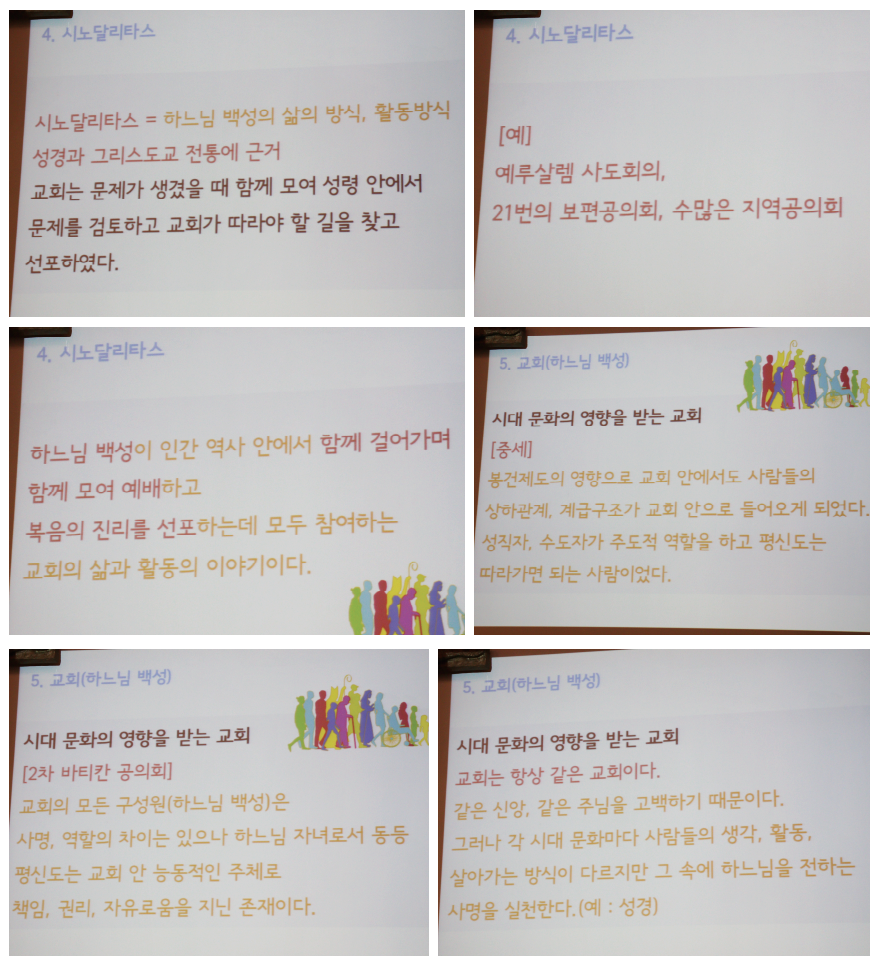 4. 시노달리타스
시노달리타스 = 하느님 백성의 삶의 방식, 활동방식
성경과 그리스도교 전통에 근거
교회는 문제가 생겼을 때 함께 모여 성령 안에서
문제를 검토하고 교회가 따라야 할 길을 찾고
선포하였다.
4. 시노달리타스
[예]
예루살렘 사도회의,
21번의 보편공의회, 수많은 지역공의회
4. 시노달리타스
하느님 백성이 인간 역사 안에서 함께 걸어가며
함께 모여 예배하고
복음의 진리를 선포하는데 모두 참여하는
교회의 삶과 활동의 이야기이다.
5. 교회(하느님 백성)
시대 문화의 영향을 받는 교회
[중세]
봉건제도의 영향으로 교회 안에서도 사람들의
상하관계, 계급구조가 교회 안으로 들어오게 되었다.
성직자, 수도자가 주도적 역할을 하고 평신도는
따라가면 되는 사람이었다.
5. 교회(하느님 백성)
시대 문화의 영향을 받는 교회
[2차 바티칸 공의회]
교회의 모든 구성원(하느님 백성)은
사명, 역할의 차이는 있으나 하느님 자녀로서 동등
평신도는 교회 안 능동적인 주체로
책임, 권리, 자유로움을 지닌 존재이다.
5. 교회(하느님 백성)
시대 문화의 영향을 받는 교회
교회는 항상 같은 교회이다.
같은 신앙, 같은 주님을 고백하기 때문이다.
그러나 각 시대 문화마다 사람들의 생각, 활동,
살아가는 방식이 다르지만 그 속에 하느님을 전하는
사명을 실천한다.(예 : 성경)